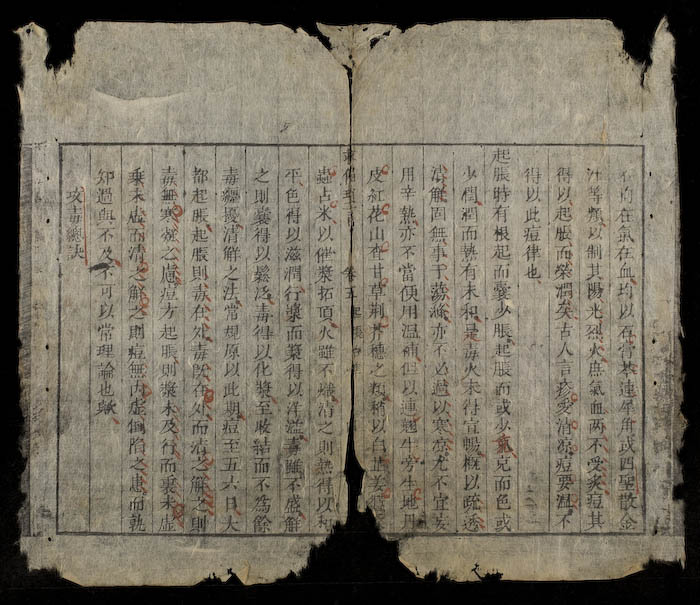 在氣在血均以石膏芩連犀角或四聖散金
汁等類以制其陽光烈火庶氣血兩不受炙痘其
得以起脹而榮潤矣古人言疹愛清涼痘要溫不
得以此痘律也
起脹時有根起而囊少脹起脹而或少氣克而色或
少潤潤而熱有未和是毒火未得宣暢概以疏透
清解固無事于蕩滌亦不必過以寒涼尤不宜妄
用辛熱亦不當便用溫補但以連翹牛蒡生地丹
皮紅花山查甘草荊芥穗之類稍以白芷姜
卷五
蟲占米以催漿拓頂火雖不熾清之則熱得以和
平色得以滋潤行漿而漿得以洋溢毒雖不盛解
之則囊得以鬆泛毒得以化漿至收結而不為餘
毒纏擾清解之法常規原以此期痘至五六日大
都起脹起脹則毒在外毒既在外而清之解之則
毒無寒凝之慮痘方起脹則漿未及行而裏未虛
乘未虛而清之解之則痘無內虛倒陷之患而孰
知過與不及不可以常理論也歟
攻毒總訣